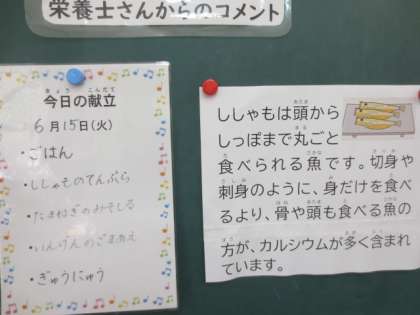 栄養士さんからのコメント
今日の献立
6月15日(火)
・ごはん
・ししゃものてんぷら
・たまねぎのみそしる
・いんげんのごまあえ
・ぎゅうにゅう
ししゃもは頭から
しっぽまで丸ごと
食べられる魚です。切身や
刺身のように、身だけを食べ
るより、骨や頭も食べる魚の
方が、カルシウムが多く含まれ
ています。